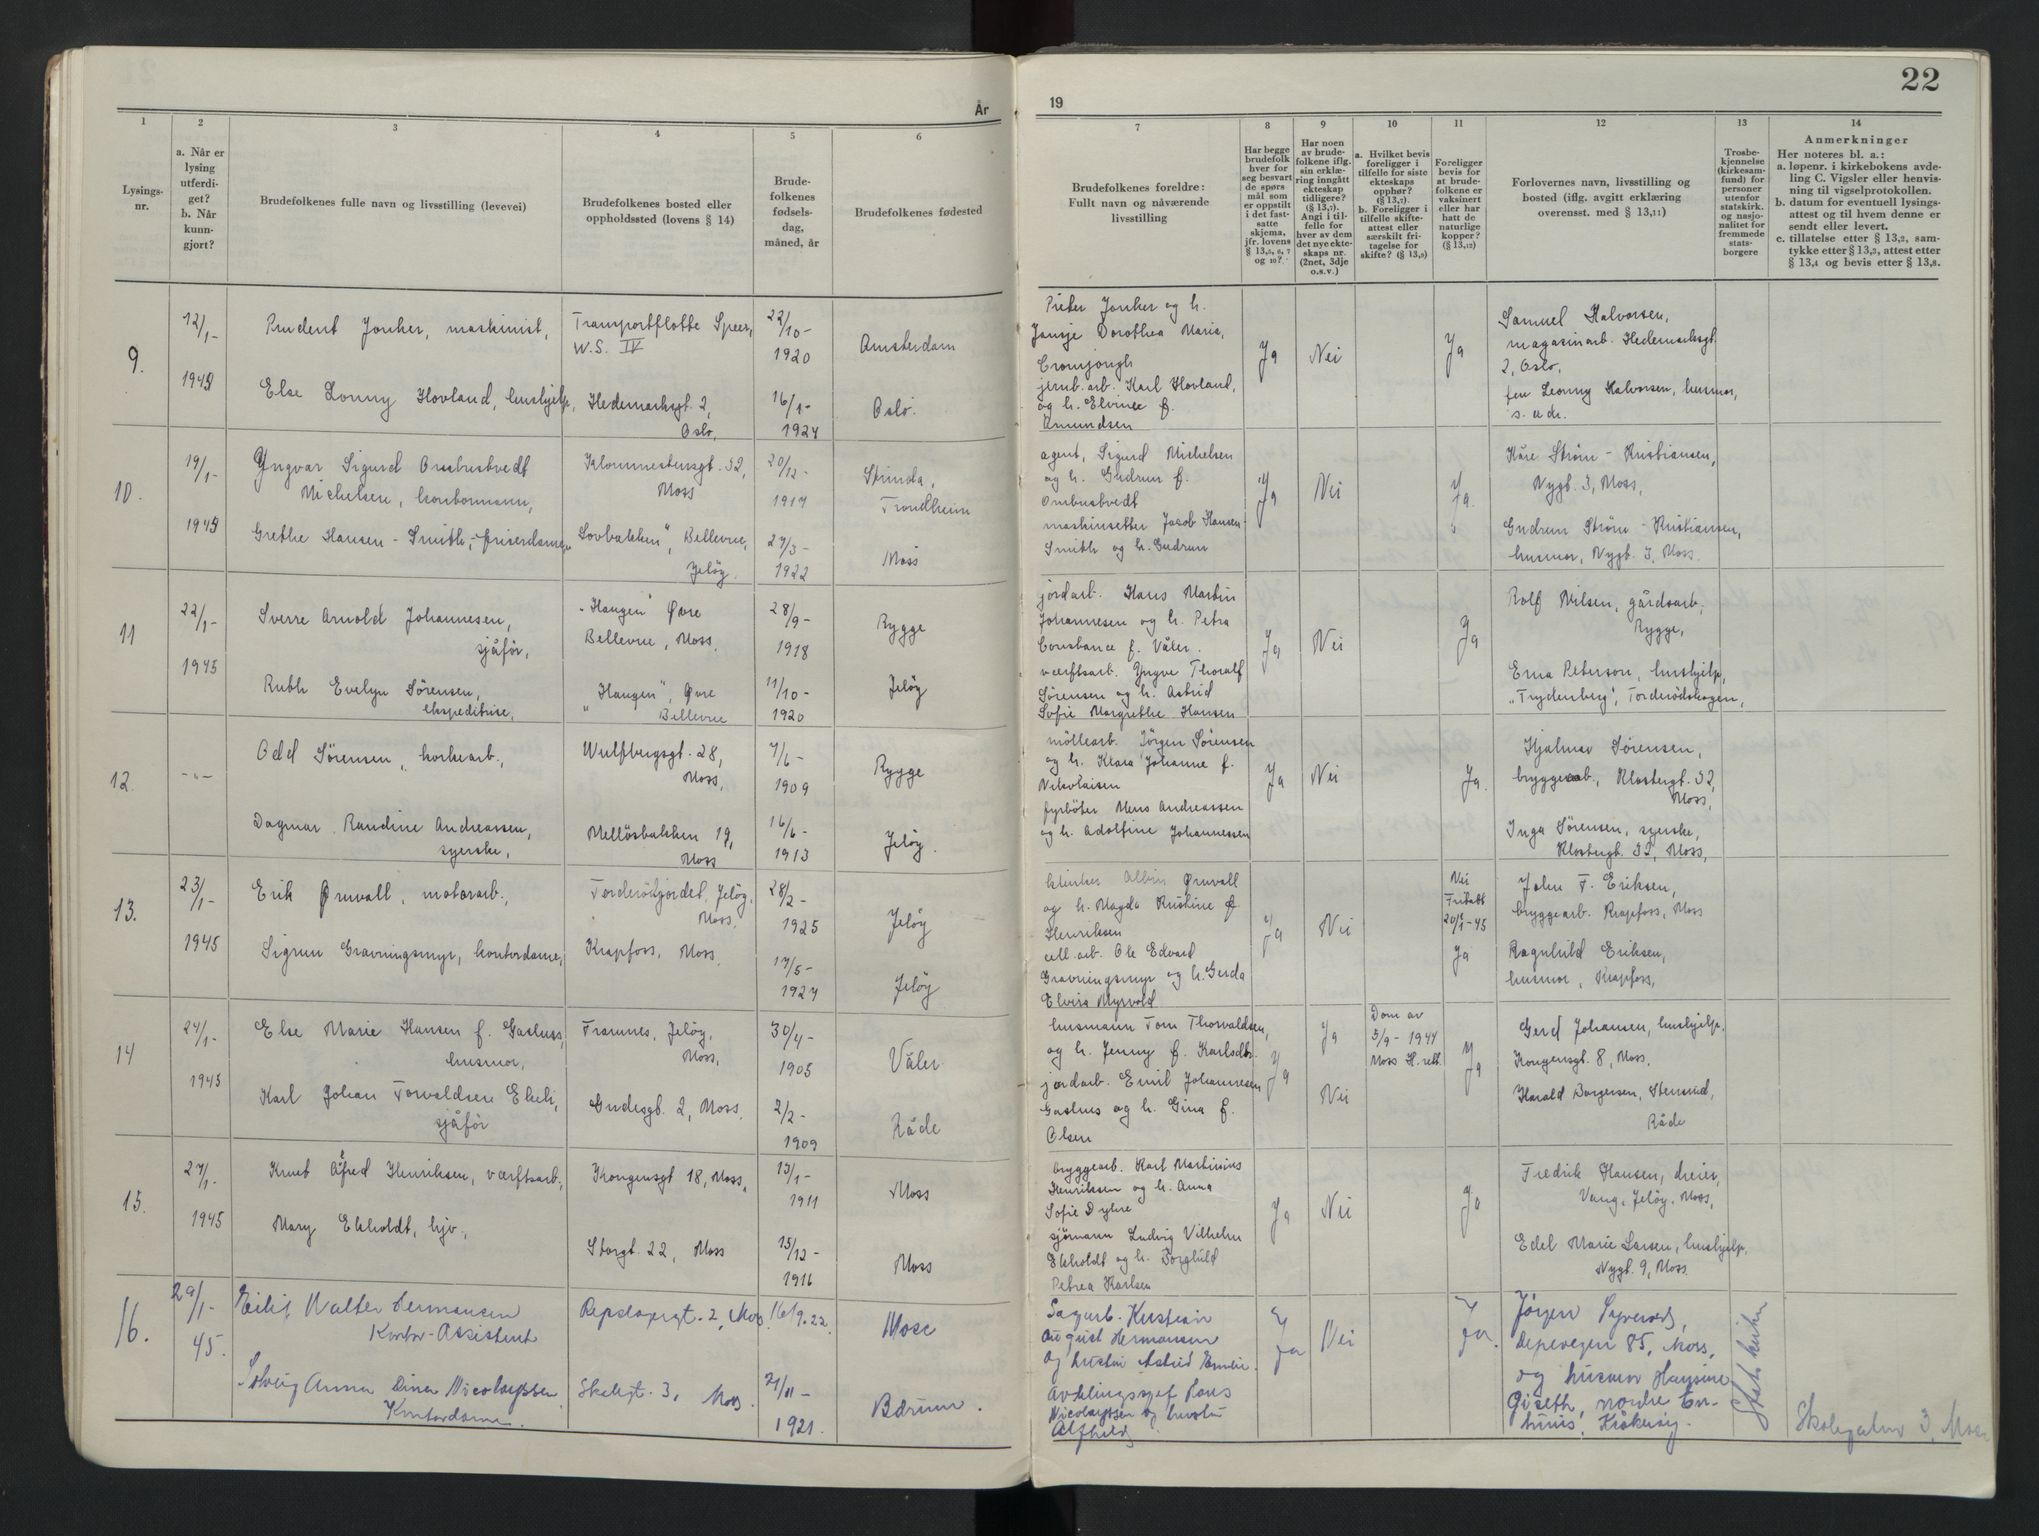 År
19
22
1
2
3
4
5
6
7
8
9
10
11
12
13
14
Lysings-
nr.
a. Når er
lysing
utferdi-
get?
b. Når
kunn-
gjort?
Brudefolkenes fulle navn og livsstilling (levevei)
Brudefolkenes bosted eller
oppholdssted (lovens § 14)
Brude-
folkenes
fødsels-
dag,
måned, år
Brudefolkenes fødested
Brudefolkenes foreldre:
Fullt navn og nåværende
livsstilling
Har begge
brudefolk
hver for
seg besvart
de spørs
mål som
er oppstilt
i det fast-
satte
skjema,
jfr. lovens
§ 13,5, 6, 7
og 10?
Har noen
av brude-
folkene iflg.
sin erklæ-
ring inngått
ekteskap
tidligere?
(§ 13,7).
Angi i til-
felle for
hver av dem
det nye ekte-
skaps nr.
(2net, 3dje
o.s.v.)
a. Hvilket bevis
foreligger i
tilfelle for siste
ekteskaps
opphør?
(§ 13,7).
b. Foreligger i
tilfelle skifte-
attest eller
særskilt fri-
tagelse for
skifte? (§ 13,9)
Foreligger
bevis for
at brude-
folkene er
vaksinert
eller har
hatt de
naturlige
kopper?
(§ 13,12)
Forlovernes navn, livsstilling og
bosted (iflg. avgitt erklæring
overensst. med § 13,11)
Trosbe-
kjennelse
(kirkesam-
fund) for
personer
utenfor
statskirk.
og nasjo-
nalitet for
fremmede
stats-
borgere
Anmerkninger
Her noteres bl. a.:
a. løpenr. i kirkebokens avde-
ling C. Vigsler eller henvis-
ning til vigselprotokollen.
b. datum for eventuell lysings-
attest og til hvem denne er
sendt eller levert.
c. tillatelse etter § 13,2, sam-
tykke etter § 13,3, attest etter
§ 13,4 og bevis etter § 13,8.
9.
12/1-
1945
Prudent Jonker, maskinist,
Transportflotte Speer,
W.S. IV
22/10-
1920
Amsterdam
Else Lonny Hovland, hushjelp,
Hedemarksgt. 2,
Oslo,
16/1-
1924
Oslo.
Pieter Jonker og h.
Jansje Dorothea Maria,
Cromjongh
jernb.arb. Karl Hovland,
og h. Elvine f.
Amundsen
Ja
Nei
Ja
Samuel Halvorsen,
magasinarb. Hedemarksgt.
2, Oslo,
fru Leonny Halvorsen, husmor,
s. adr.
10.
19/1-
1945
Yngvar Sigurd Ombustvedt
Michelsen, kontormann,
52,
Moss
20/12-
1917
Strinda,
Trondheim
Grethe Hansen - Smith, friserdame,
Lovbakken", Bellevue,
Jeløy.
27/3-
1922
Moss
agent, Sigurd Michelsen
og h. Gudrun f.
Ombustvedt
maskinsetter Jacob Hansen-
Smith og h. Gudrun
Ja
Nei
Ja.
Kåre Strøm - Kristiansen,
Nygt. 3, Moss,
Gudrun Strøm - Kristiansen,
husmor, Nygt. 3, Moss.
11
22/1-
1945
Sverre Arnold Johannesen,
sjåfør,
"Haugen" Øvre
Bellevue, Moss.
28/9-
1918
Rygge
Ruth Evelyn Sørensen,
ekspeditrise,
"Haugen", Øvre
Bellevue
11/10-
1920
Jeløy
jordarb. Hans Martin
Johannesen og h. Petra
Constance f. Våler.
værftsarb. Yngve Thoralf
Sørensen og h. Astrid
Sofie Margrethe Hansen
Ja
Nei
Ja
Rolf Nilsen, gårdsarb,
Rygge,
Erna Peterson, hushjelp,
"Trydenberg", Torderødskogen,
12.
-"-
Odd Sørensen, korkearb.,
Wulfsbergsgt. 28,
Moss,
7/6-
1909
Rygge
Dagmar Randine Andreassen,
syerske,
Melløsbakken 19,
Moss
16/6-
1913
Jeløy.
møllearb. Jørgen Sørensen
og h. Klara Johanne f.
Nikolaisen
fyrbøter Mens Andreassen
og h. Adolfine Johannessen
Ja
Nei
Ja.
Hjalmar Sørensen,
bryggearb., Klostergt. 32,
Moss,
Inga Sørensen, syerske,
Klostergt. 32, Moss,
13.
23/1-
1945
Erik Ørnvall, motorarb.,
Torderødjordet, Jeløy,
Moss.
28/2-
1925
Jeløy
Sigrun Gravningsmyr, kontordame,
Krapfoss, Moss.
17/5-
1924
Jeløy
Albin Ørnvall
og h. Magda Kristine f
Henriksen
cell.arb. Ole Edvard
Gravningsmyr og h. Gerda
Elvira Myrvold
Ja
Nei
Nei
Fritatt
20/1-45
Ja
John F. Eriksen,
bryggearb. Krapfoss, Moss
Ragnhild Eriksen,
husmor, Krapfoss,
14
24/1-
1945
Else Marie Hansen f. Gashus,
husmor,
Framnes, Jeløy,
Moss,
30/4-
1905
Våler
Karl Johan Torvaldsen Ekeli,
sjåfør
Gudesgt. 2, Moss.
2/2-
1909
Råde
husmann Tom Thorvaldsen,
og h. Jenny f. Karlsdtr.
jordarb. Emil Johannesen
Gashus og h. Gina f.
Olsen
Ja
Ja
Nei
Dom av
5/9-1944
Moss H.rett
Ja
Gerd Johansen, hushjelp.
Kongensgt 8, Moss.
Harald Borgersen, Stensrud,
Råde
15.
27/1.
1945
Knut Alfred Henriksen, værftsarb.,
Kongensgt 18, Moss,
13/1-
1911
Moss
Mary Ekholdt, hjv.,
Storgt. 22, Moss
15/12-
1916
Moss
bryggearb. Karl Martinius
Henriksen og h. Anna
Sofie Dyhre
sjømann Ludvig Vilhelm
Ekholdt og h. Torghild
Petrea Karlsen
Ja
Nei
Ja
Fredrik Hansen, dreier,
Vang, Jeløy, Moss,
Edel Marie Larsen, hushjelp,
Nygt. 9, Moss
16.
29/1-
45.
Eilif Walter Hermansen
Kontor-Assistent
Repslagergt. 2, Moss
16/9.22.
Moss
Solveig Anna Dina Nicolayssen
Kontordame.
Skolegt. 3, Moss
21/11-
1921.
Bærum.
Sagarb. Kristian
August Hermansen
og hustru Astrid Emelie.
Avdelingssjef Hans
Nicolayssen og hustru
Alfhild
Ja
Nei
Ja.
Jørgen Syversen,
Repevegen 85, Moss,
og husmor Haysine
Giseth, nordre En-
hus, Kråkerøy.
Statskirken
Skolegaten 3, Moss